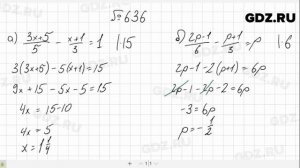 GDZ.RU
№ 636
а) (3x+5)/5 - (x+1)/3 = 1 |·15
3(3x+5) - 5(x+1) = 15
9x + 15 - 5x - 5 = 15
4x = 15-10
4x = 5
x = 1 1/4
б) (2p-1)/6 - (p+1)/3 = p |·6
2p-1-2(p+1) = 6p
2p-1-2p-2 = 6p
-3 = 6p
p = -1/2
GDZ.RU